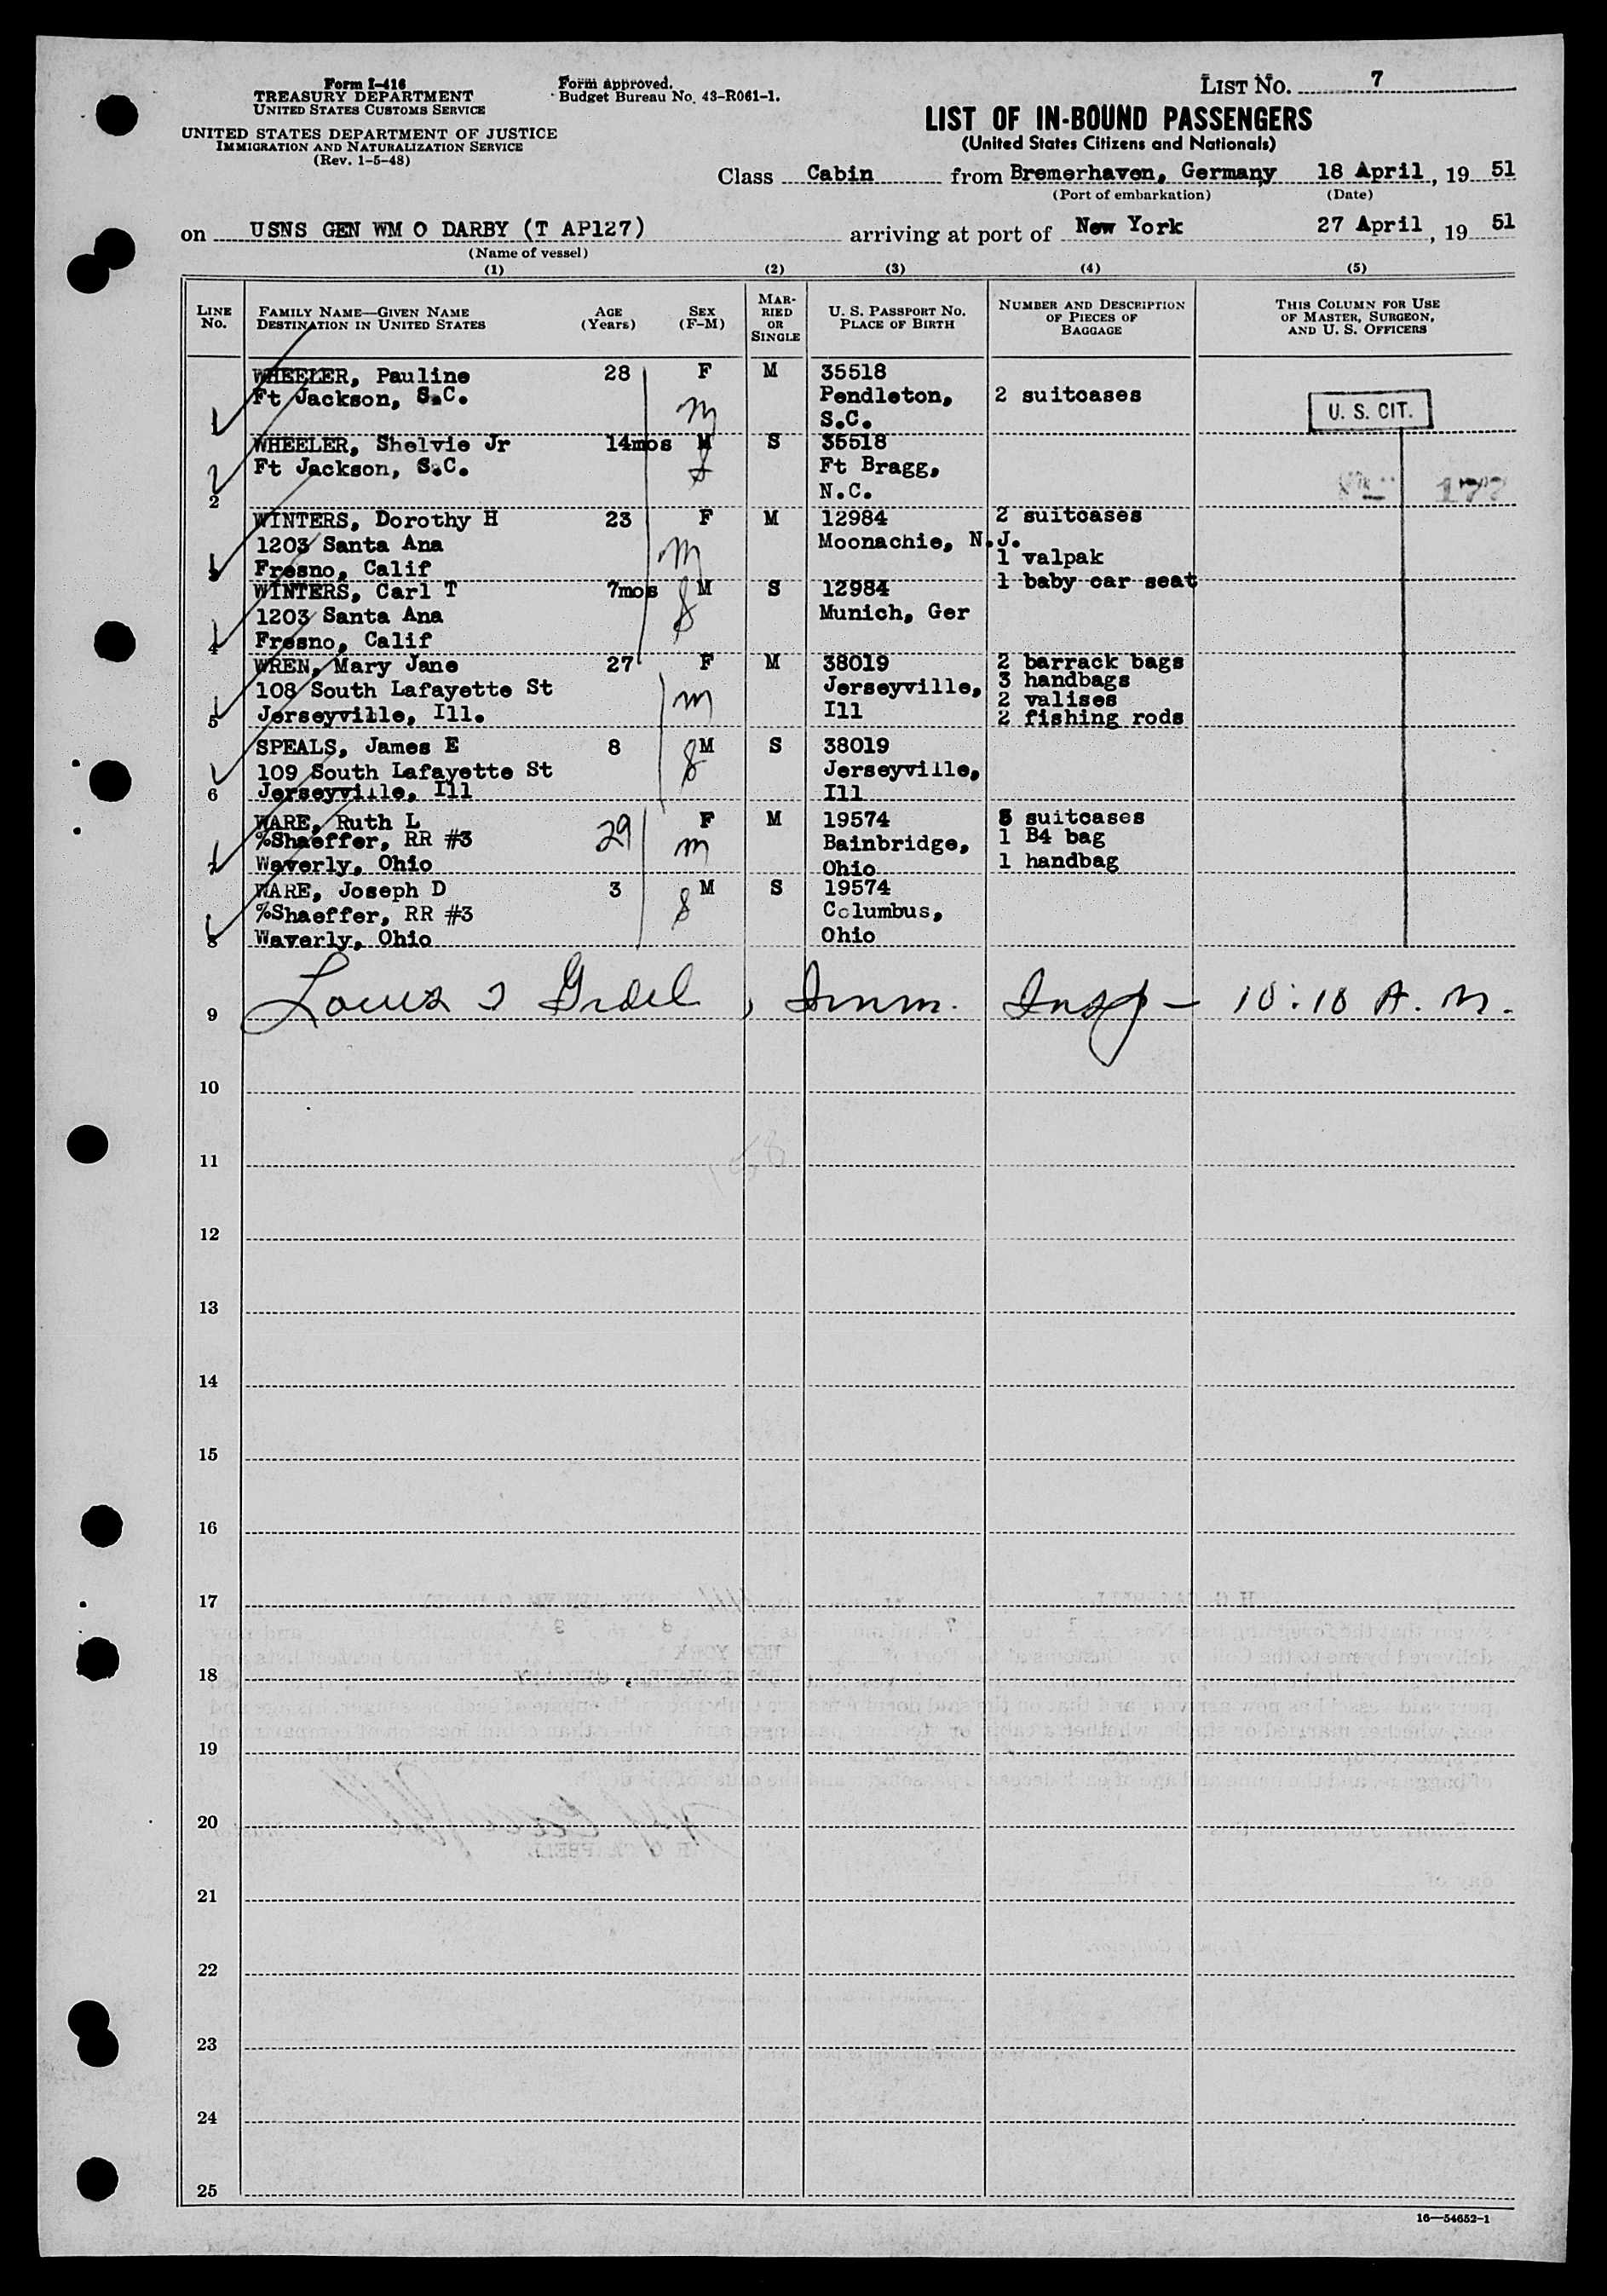 Form I-416
TREASURY DEPARTMENT
UNITED STATES CUSTOMS SERVICE
UNITED STATES DEPARTMENT OF JUSTICE
IMMIGRATION AND NATURALIZATION SERVICE
(Rev. 1-5-48)
Form approved.
Budget Bureau No. 43-R061-1.
LIST NO. 7
LIST OF IN-BOUND PASSENGERS
(United States Citizens and Nationals)
Class Cabin from Bremerhaven, Germany 18 April, 19 51
(Port of embarkation) (Date)
on USNS GEN WM O DARBY (T AP127) arriving at port of New York 27 April, 19 51
(Name of vessel)
(1) (2) (3) (4) (5)
LINE NO. FAMILY NAME—GIVEN NAME DESTINATION IN UNITED STATES AGE (Years) SEX (F-M) MARRIED OR SINGLE U. S. PASSPORT NO. PLACE OF BIRTH NUMBER AND DESCRIPTION OF PIECES OF BAGGAGE THIS COLUMN FOR USE OF MASTER, SURGEON, AND U. S. OFFICERS
WHEELER, Pauline 28 F M 35518
Ft Jackson, S.C. m Pendleton, 2 suitcases U. S. CIT.
1 S.C.
WHEELER, Shelvie Jr 14mos M S 35518
Ft Jackson, S.C. Ft Bragg,
2 N.C. 177
WINTERS, Dorothy H 23 F M 12984 2 suitcases
1203 Santa Ana m Moonachie, N.J.
3 Fresno, Calif 1 valpak
WINTERS, Carl T 7mos M S 12984 1 baby car seat
1203 Santa Ana Munich, Ger
4 Fresno, Calif
WREN, Mary Jane 27 F M 38019 2 barrack bags
108 South Lafayette St m Jerseyville, 3 handbags
5 Jerseyville, Ill. Ill 2 valises
2 fishing rods
SPEALS, James E 8 M S 38019
109 South Lafayette St Jerseyville,
6 Jerseyville, Ill Ill
WARE, Ruth L 29 F M 19574 5 suitcases
%Shaeffer, RR #3 m Bainbridge, 1 B4 bag
7 Waverly, Ohio Ohio 1 handbag
WARE, Joseph D 3 M S 19574
%Shaeffer, RR #3 Columbus,
8 Waverly, Ohio Ohio
9 Imm. Insp - 10:10 A.M.
10
11
12
13
14
15
16
17
18
19
20
21
22
23
24
25
16—54652-1